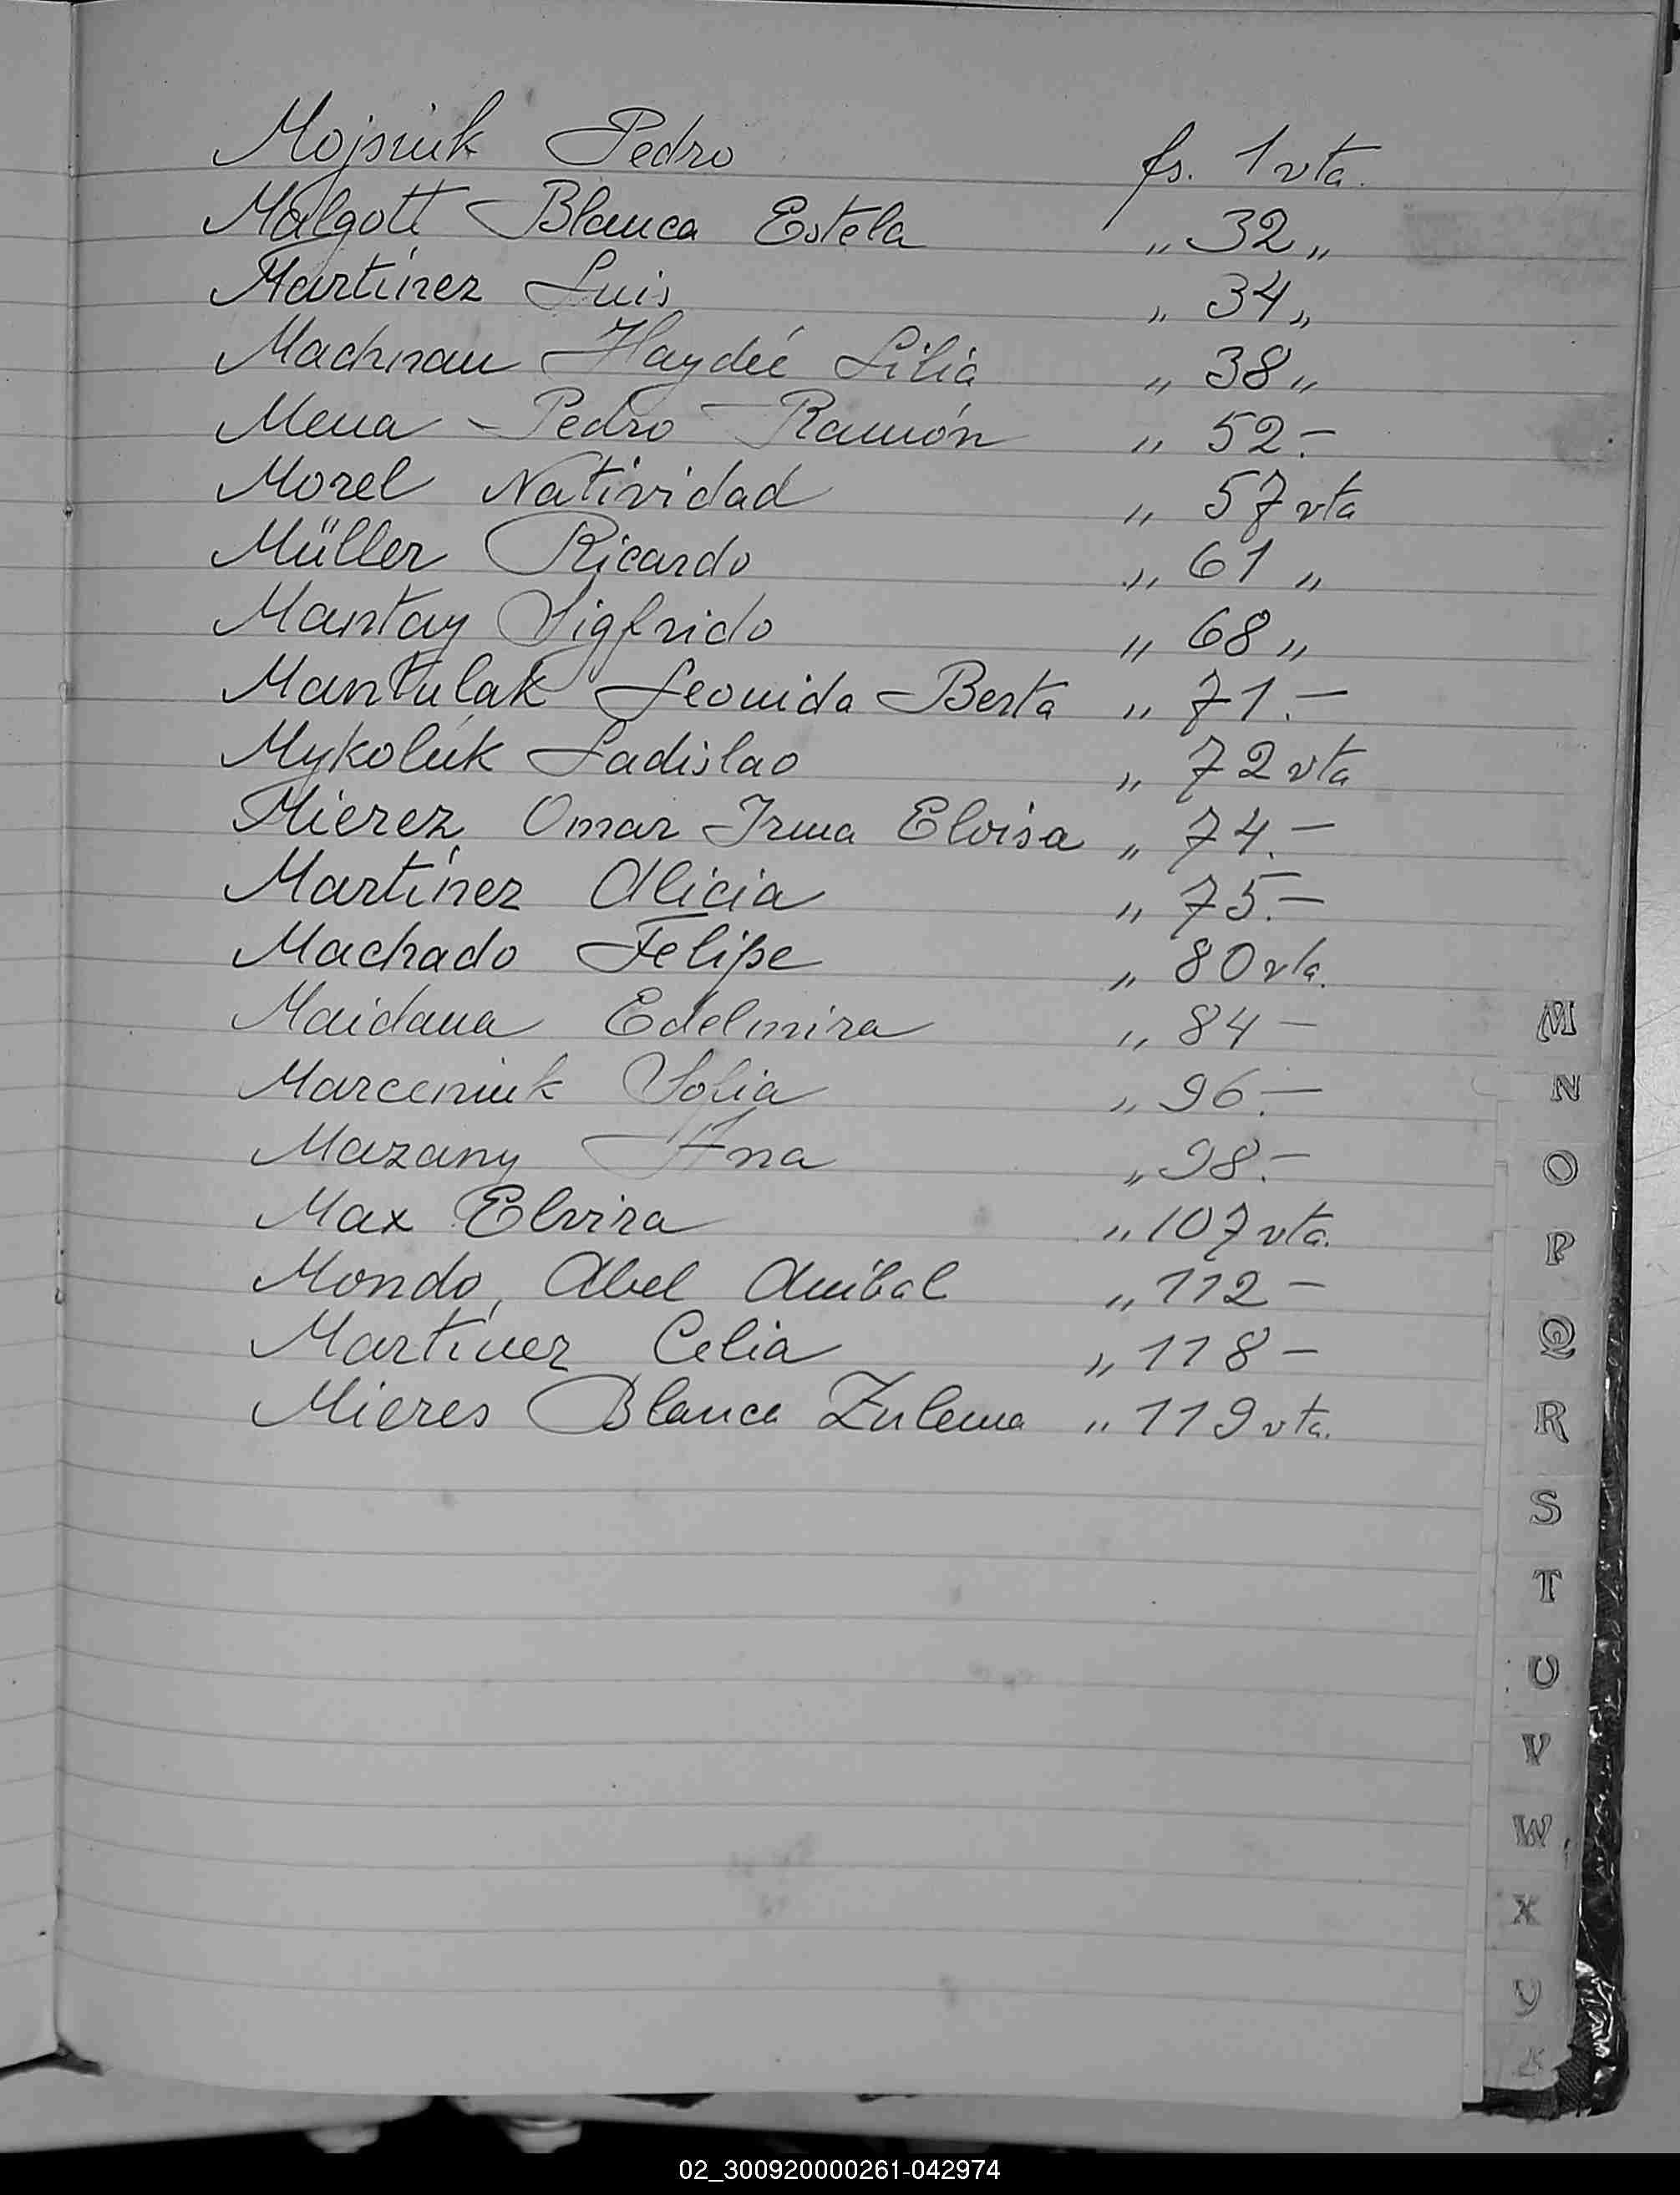 Mojsiuk Pedro fs. 1 vta.
Malgott Blanca Estela " 32 "
Martínez Luis " 34 "
Machnau Haydée Lilia " 38 "
Mena Pedro Ramón " 52.-
Morel Natividad " 57 vta
Müller Ricardo " 61 "
Mantay Sigfrido " 68 "
Mantulak Leonida Berta " 71.-
Mykoliuk Ladislao " 72 vta
Mierez, Omar Irma Eloisa " 74.-
Martínez Alicia " 75.-
Machado Felipe " 80 vta.
Maidana Edelmira " 84 -
Marceniuk Sofia " 96.-
Mazany Ana " 98.-
Max Elvira " 107 vta.
Mondo, Abel Anibal " 112 -
Martínez Celia " 118 -
Mieres Blanca Zulema " 119 vta.
M
N
O
P
Q
R
S
T
U
V
W
X
Y
02_300920000261-042974